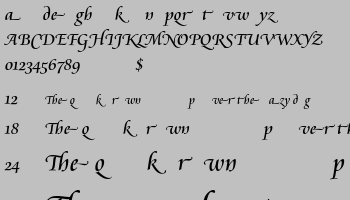 a de gh k n pqr t vw yz
ABCDEFGHIJKLMNOPQRSTUVWXYZ
0123456789 $
12 The Q k r wn p ver the azy d g
18 The Q k r wn p ver t
24 The Q k r wn p